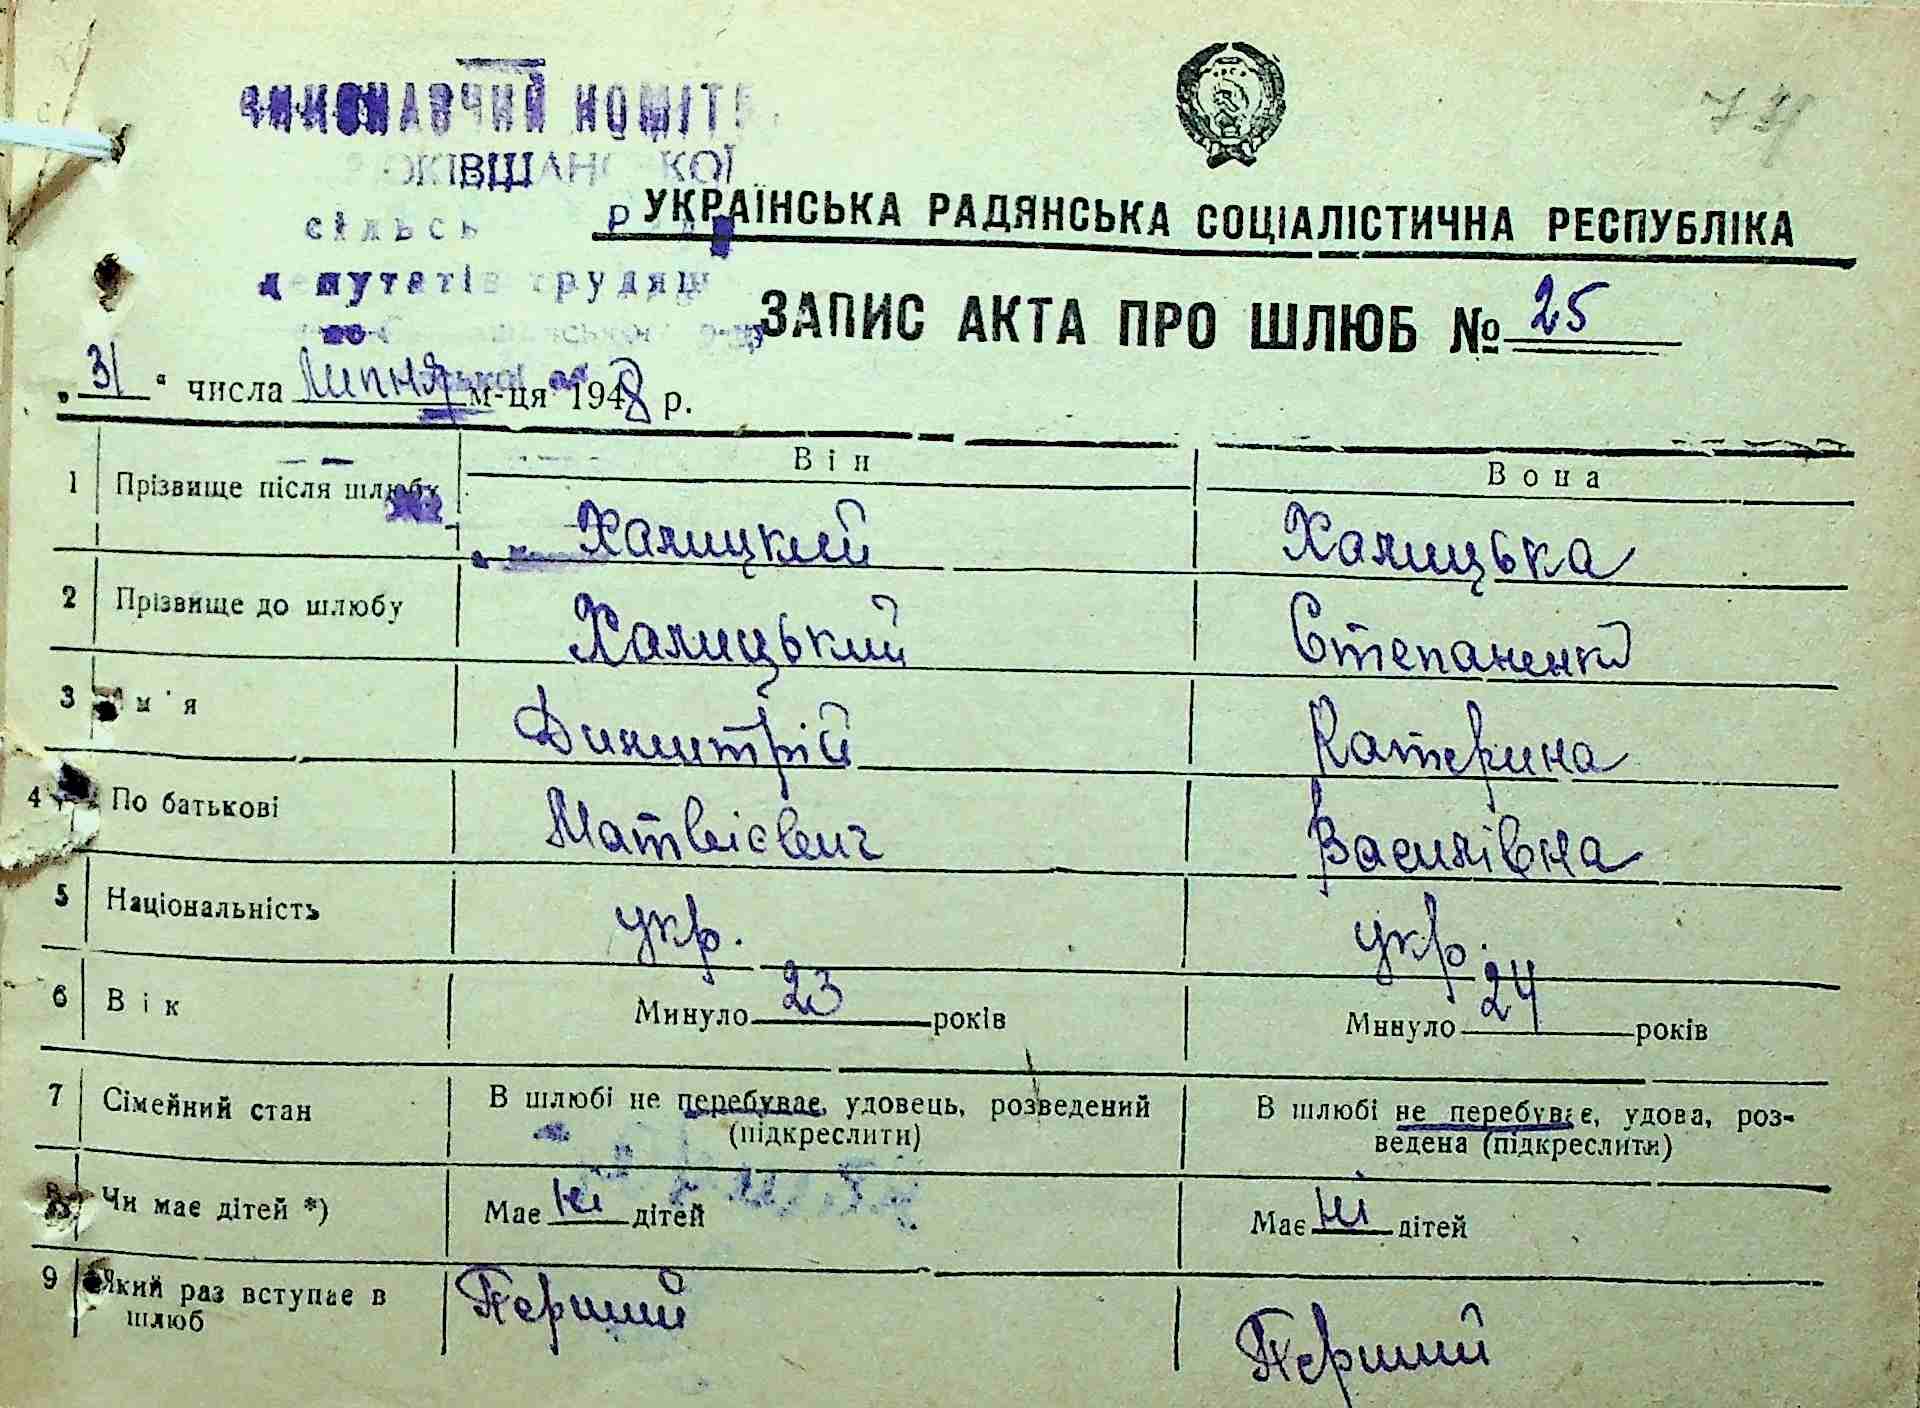 ВИКОНАВЧИЙ КОМІТЕ
ОКІВЩАНСЬКОЇ
депутатів трудящ
74
УКРАЇНСЬКА РАДЯНСЬКА СОЦІАЛІСТИЧНА РЕСПУБЛІКА
ЗАПИС АКТА ПРО ШЛЮБ № 25
„31“ числа Липня м-ця 1948 р.
Він Вона
1 Прізвище після шлюбу Халицкий Халицька
2 Прізвище до шлюбу Халицький Степаненко
3 Ім'я Димитрій Катерина
4 По батькові Матвієвич Василівна
5 Національність укр. укр.
6 Вік Минуло 23 років Минуло 24 років
7 Сімейний стан В шлюбі не перебуває, удовець, розведений (підкреслити) В шлюбі не перебуває, удова, роз-
ведена (підкреслити)
8 Чи має дітей *) Має ні дітей Має ні дітей
9 Який раз вступає в шлюб Перший Перший